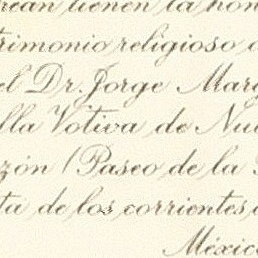 rean tienen la hon
trimonio religioso
el Dr. Jorge Marq
lla Votiva de Nue
zón (Paseo de la
ta de los corrientes
México